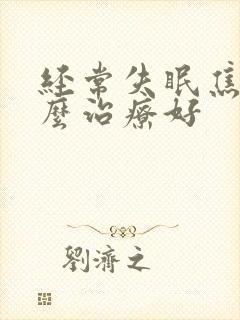 経常失眠焦
麼治療好
劉濟之